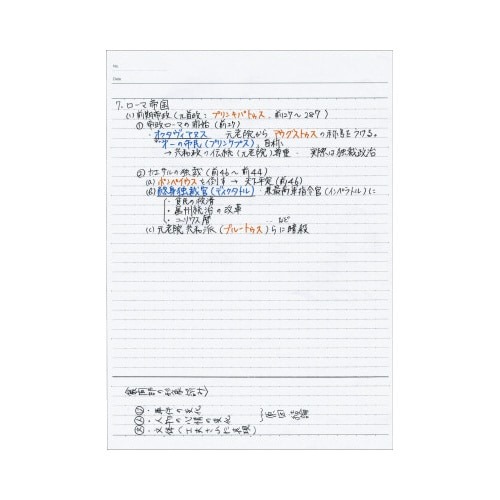 No.
Date
7. ローマ帝国
(1) 前期帝政（元首政：プリンキパトゥス．前27～287）
① 帝政ローマの開始（前27）
・オクタヴィアヌス 元老院からアウグストゥスの称号をうける。
"第一の市民（プリンケプス）"自称
→ 共和政の伝統（元老院）尊重・実際は独裁政治
② カエサルの独裁（前46～前44）
(a) ポンペイウスを倒す → 天下平定（前46）
(b) 終身独裁官（ディクタトル）・最高軍司令官（インペラトル）に
・貧民の救済
・属州統治の改革
・ユリウス暦 … など
(c) 元老院共和派（ブルートゥス）らに暗殺
・事件の変化
・人物の心情の変化
・文体（工夫された表現）